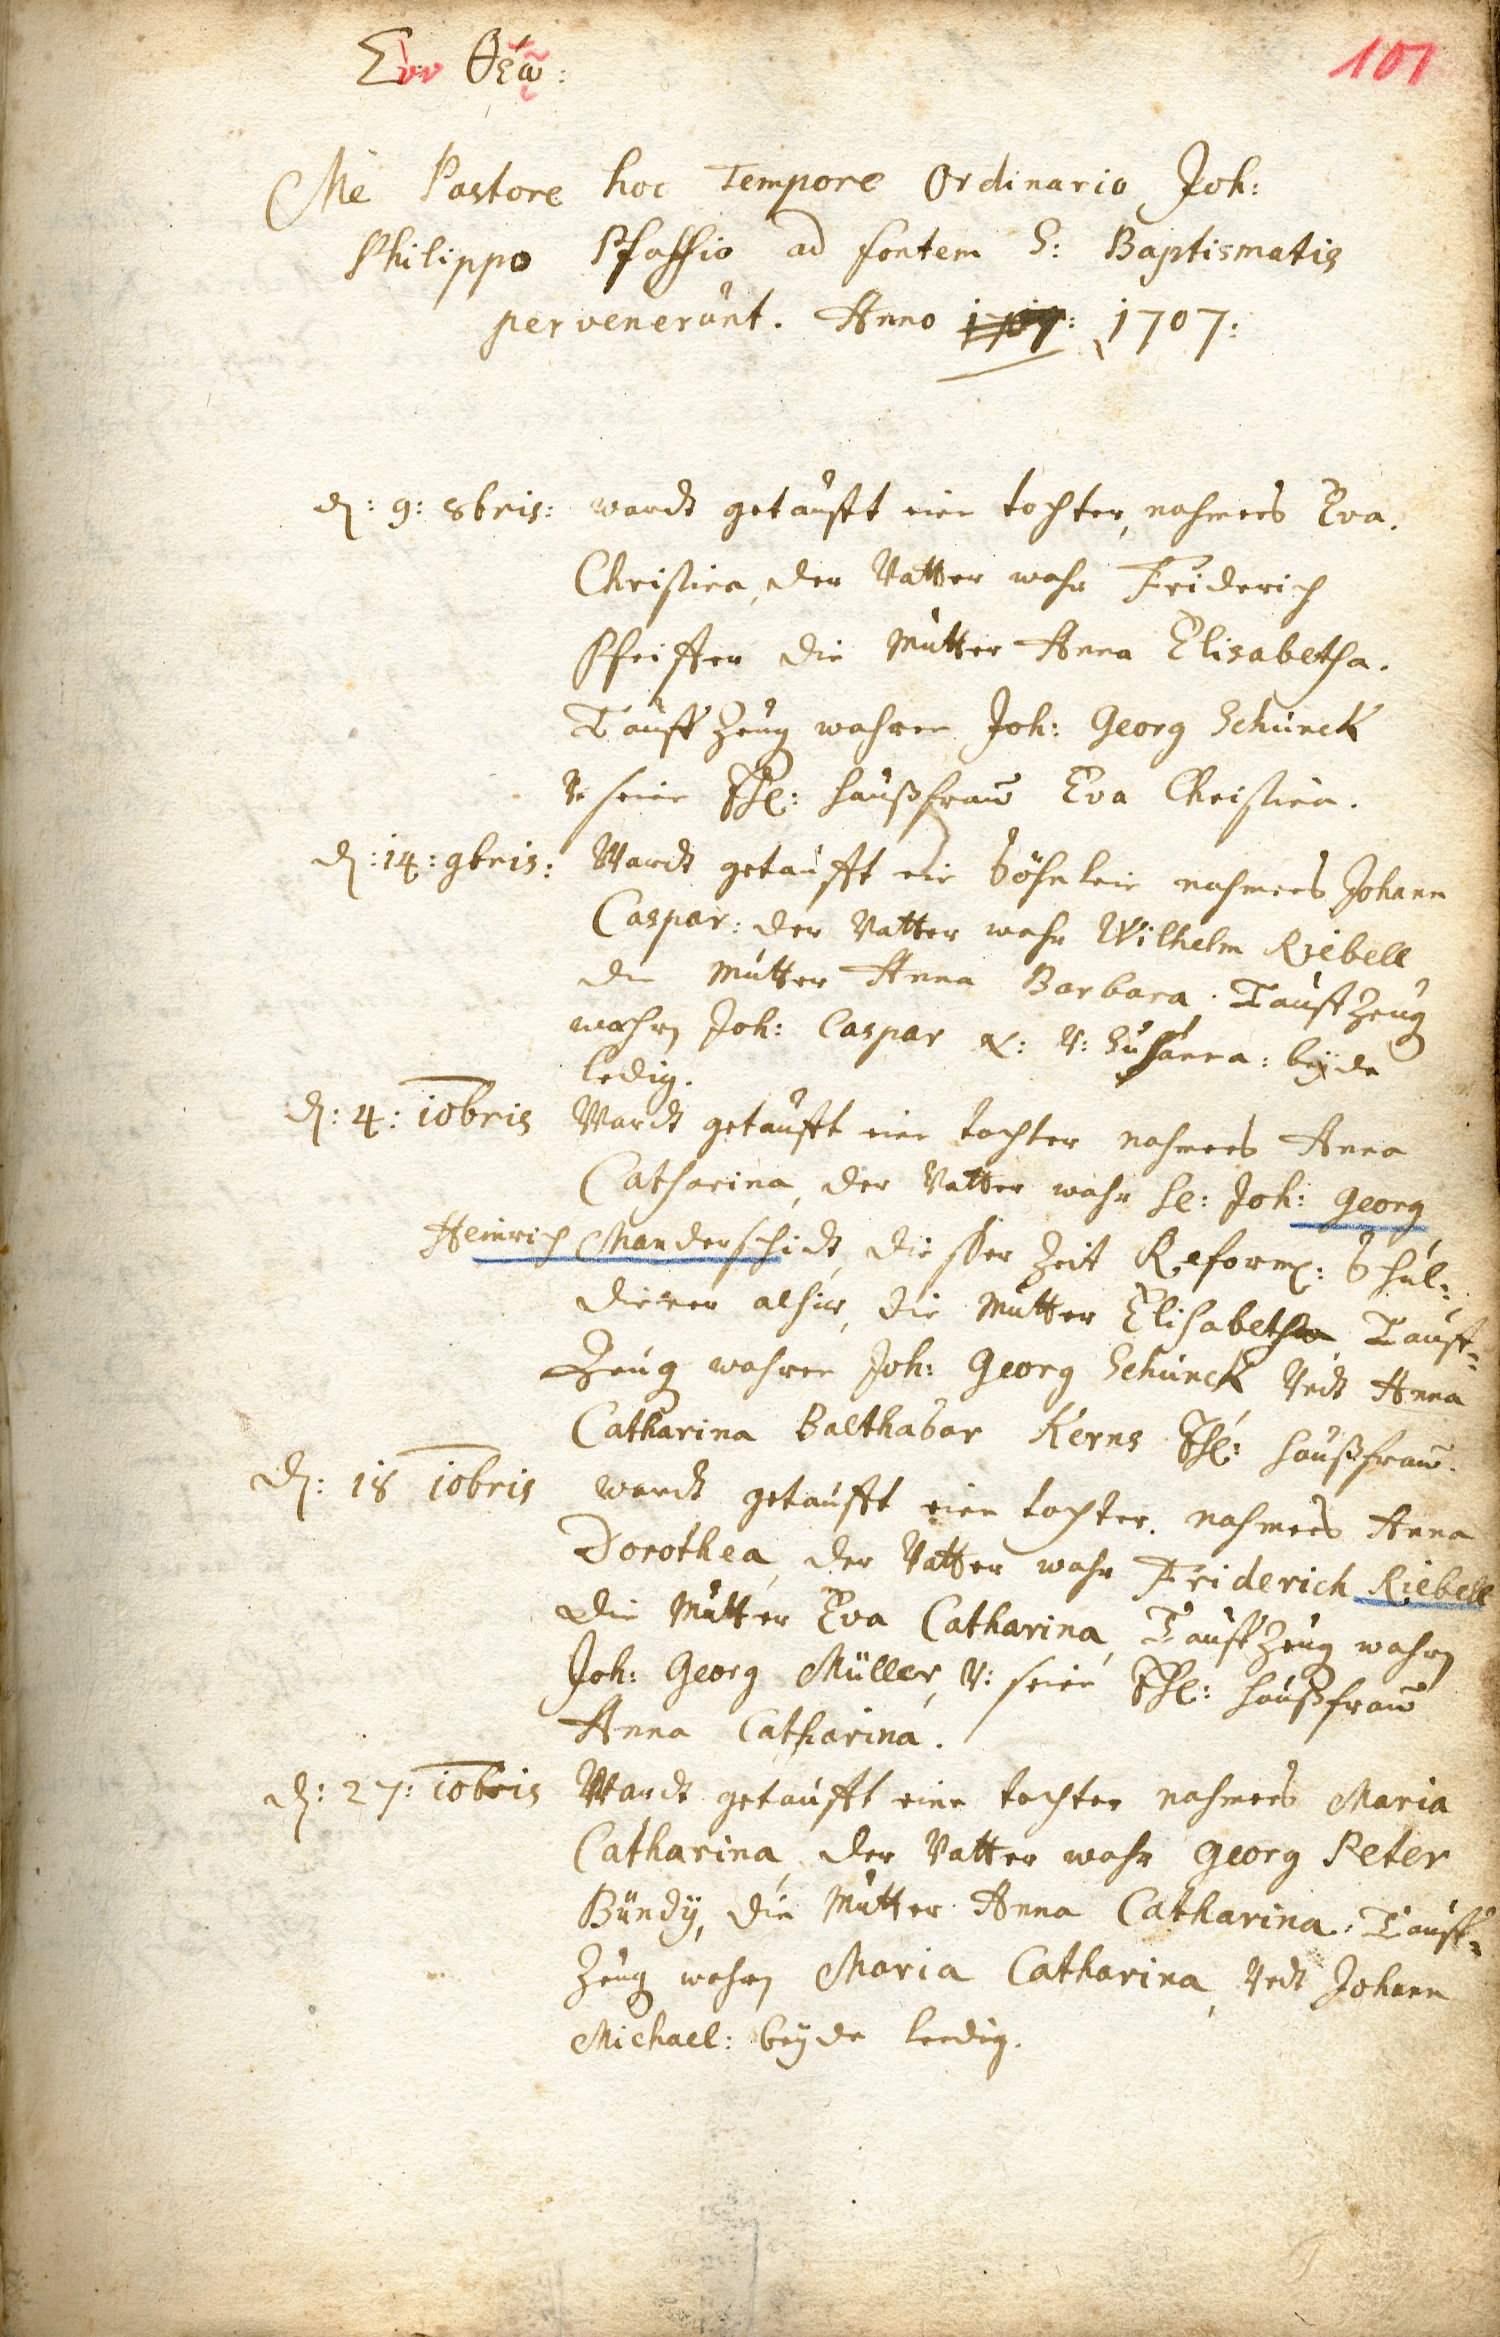 Σὺν Θεῷ:
101
Me Pastore hoc Tempore Ordinario Joh:
Philippo Pfaffio ad fontem S: Baptismatis
pervenerunt. Anno 1707:
d: 9: 8bris: wardt getaufft eine tochter, nahmens Eva
Christina, der Vatter wahr Friderich
Pfeiffer die Mutter Anna Elisabetha.
Tauff Zeug wahren Joh: Georg Schunck
V: seine Ehl: haußfrau Eva Christina.
d: 14: 9bris: Wardt getaufft ein Söhnlein nahmens Johann
Caspar: der Vatter wahr Wilhelm Riebell
die Mutter Anna Barbara. Tauff Zeug
wahren Joh: Caspar V: Susanna: beyde
ledig.
d: 4: 10bris Wardt getaufft eine tochter nahmens Anna
Catharina, der Vatter wahr H: Joh: Georg
Heinrich Manderschidt, dießer Zeit Reform: Schul-
diener alhier, die Mutter Elisabetha Tauff-
Zeug wahren Joh: Georg Schunck Vndt Anna
Catharina Balthasar Kerns Ehl: haußfrau.
d: 18 10bris wardt getaufft eine tochter. nahmens Anna
Dorothea, der Vatter wahr Friderich Riebell
die Mutter Eva Catharina, Tauff Zeug wahren
Joh: Georg Müller, V: seine Ehl: haußfrau
Anna Catharina.
d: 27: 10bris Wardt getaufft eine tochter nahmens Maria
Catharina, der Vatter wahr Georg Peter
Bündÿ, die Mutter Anna Catharina. Tauff-
Zeug wahren Maria Catharina, Vndt Johann
Michael: beÿde leedig.